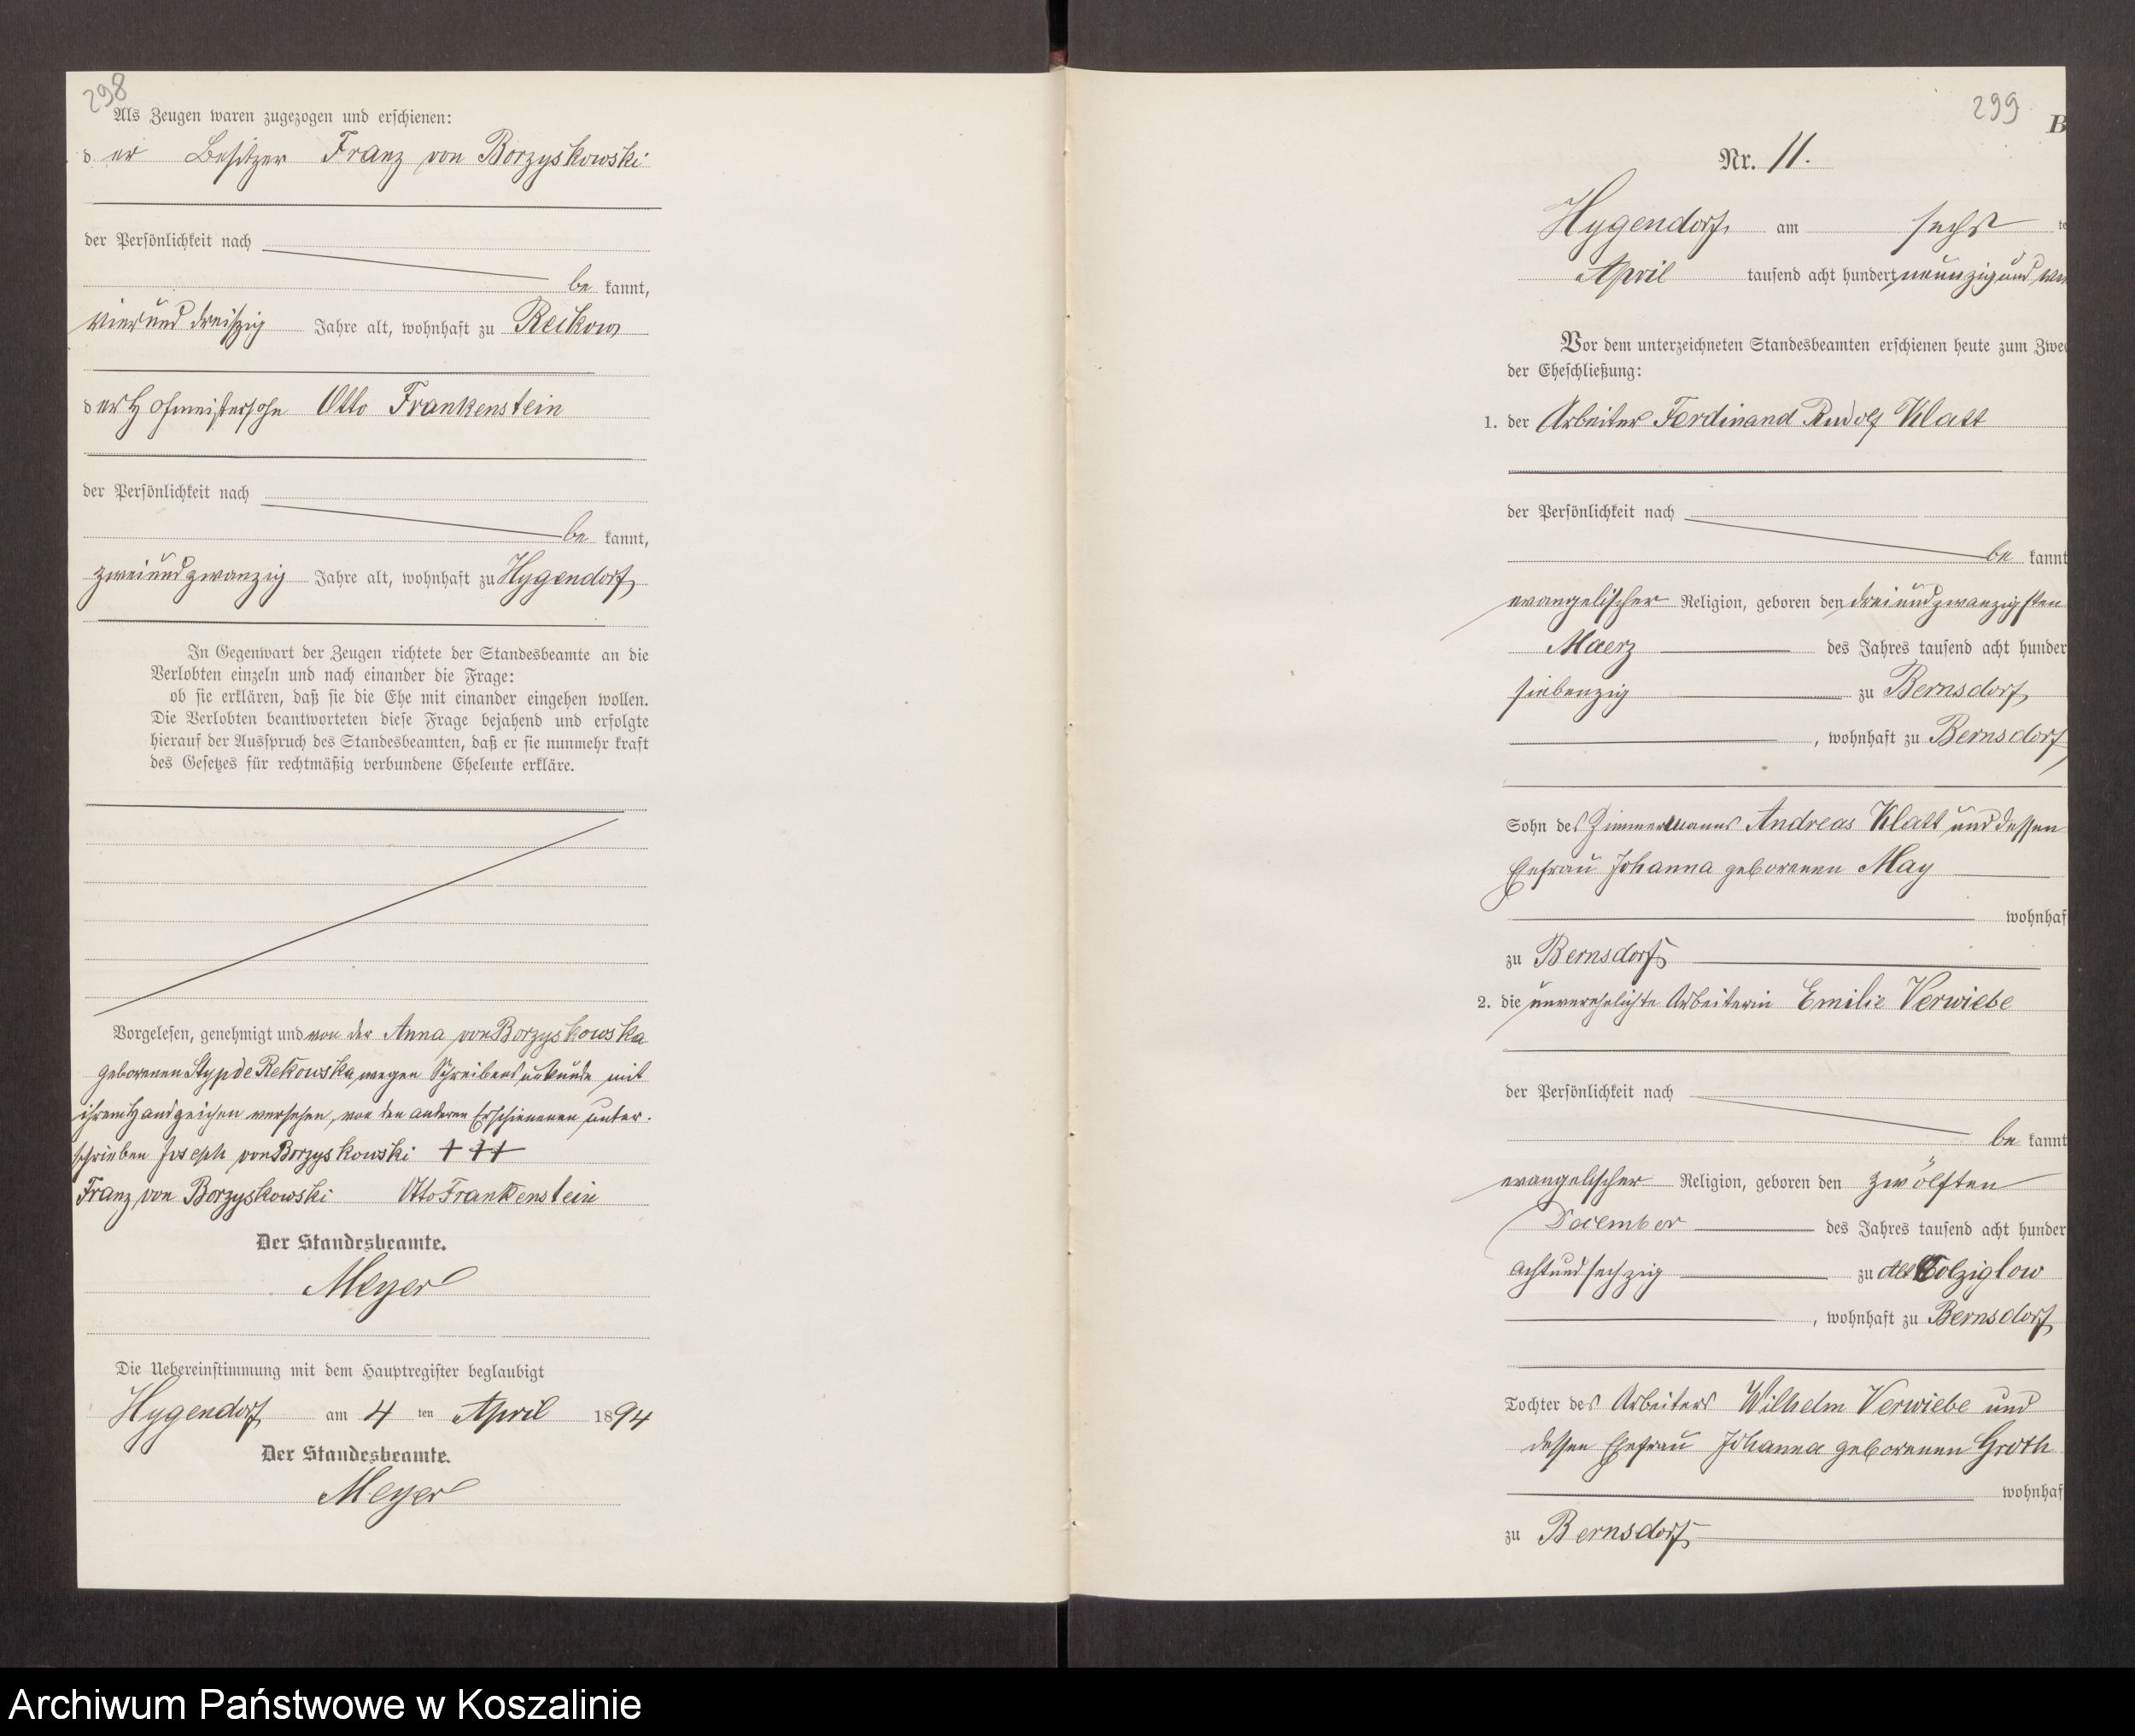 298
Als Zeugen waren zugezogen und erschienen:
d er Besitzer Franz von Borzyskowski
der Persönlichkeit nach
be kannt,
vierunddreißig Jahre alt, wohnhaft zu Reckow
d er Hofmeistersohn Otto Frankenstein
der Persönlichkeit nach
be kannt,
zweiundzwanzig Jahre alt, wohnhaft zu Hygendorf
In Gegenwart der Zeugen richtete der Standesbeamte an die
Verlobten einzeln und nach einander die Frage:
ob sie erklären, daß sie die Ehe mit einander eingehen wollen.
Die Verlobten beantworteten diese Frage bejahend und erfolgte
hierauf der Ausspruch des Standesbeamten, daß er sie nunmehr kraft
des Gesetzes für rechtmäßig verbundene Eheleute erkläre.
Vorgelesen, genehmigt und von der Anna von Borzyskowska
geborenen Styp de Rekowska wegen Schreibensunkunde mit
ihrem Handzeichen versehen, von den anderen Erschienenen unter-
schrieben Joseph von Borzyskowski +++
Franz von Borzyskowski Otto Frankenstein
Der Standesbeamte.
Meyer
Die Uebereinstimmung mit dem Hauptregister beglaubigt
Hygendorf am 4 ten April 1894
Der Standesbeamte.
Meyer
299
B
Nr. 11.
Hygendorf am sechs te
April tausend acht hundert neunzig und vie
Vor dem unterzeichneten Standesbeamten erschienen heute zum Zwe
der Eheschließung:
1. der Arbeiter Ferdinand Rudolf Klatt
der Persönlichkeit nach
be kannt
evangelischer Religion, geboren den dreiundzwanzigsten
Maerz des Jahres tausend acht hunder
siebenzig zu Bernsdorf
, wohnhaft zu Bernsdorf
Sohn des Zimmermanns Andreas Klatt und dessen
Ehefrau Johanna geborenen May
wohnhaf
zu Bernsdorf
2. die unverehelichte Arbeiterin Emilie Verwiebe
der Persönlichkeit nach
be kannt
evangelischer Religion, geboren den zwölften
December des Jahres tausend acht hunder
achtundsechzig zu Alt Colziglow
, wohnhaft zu Bernsdorf
Tochter des Arbeiters Wilhelm Verwiebe und
dessen Ehefrau Johanna geborenen Groth
wohnhaf
zu Bernsdorf
Archiwum Państwowe w Koszalinie